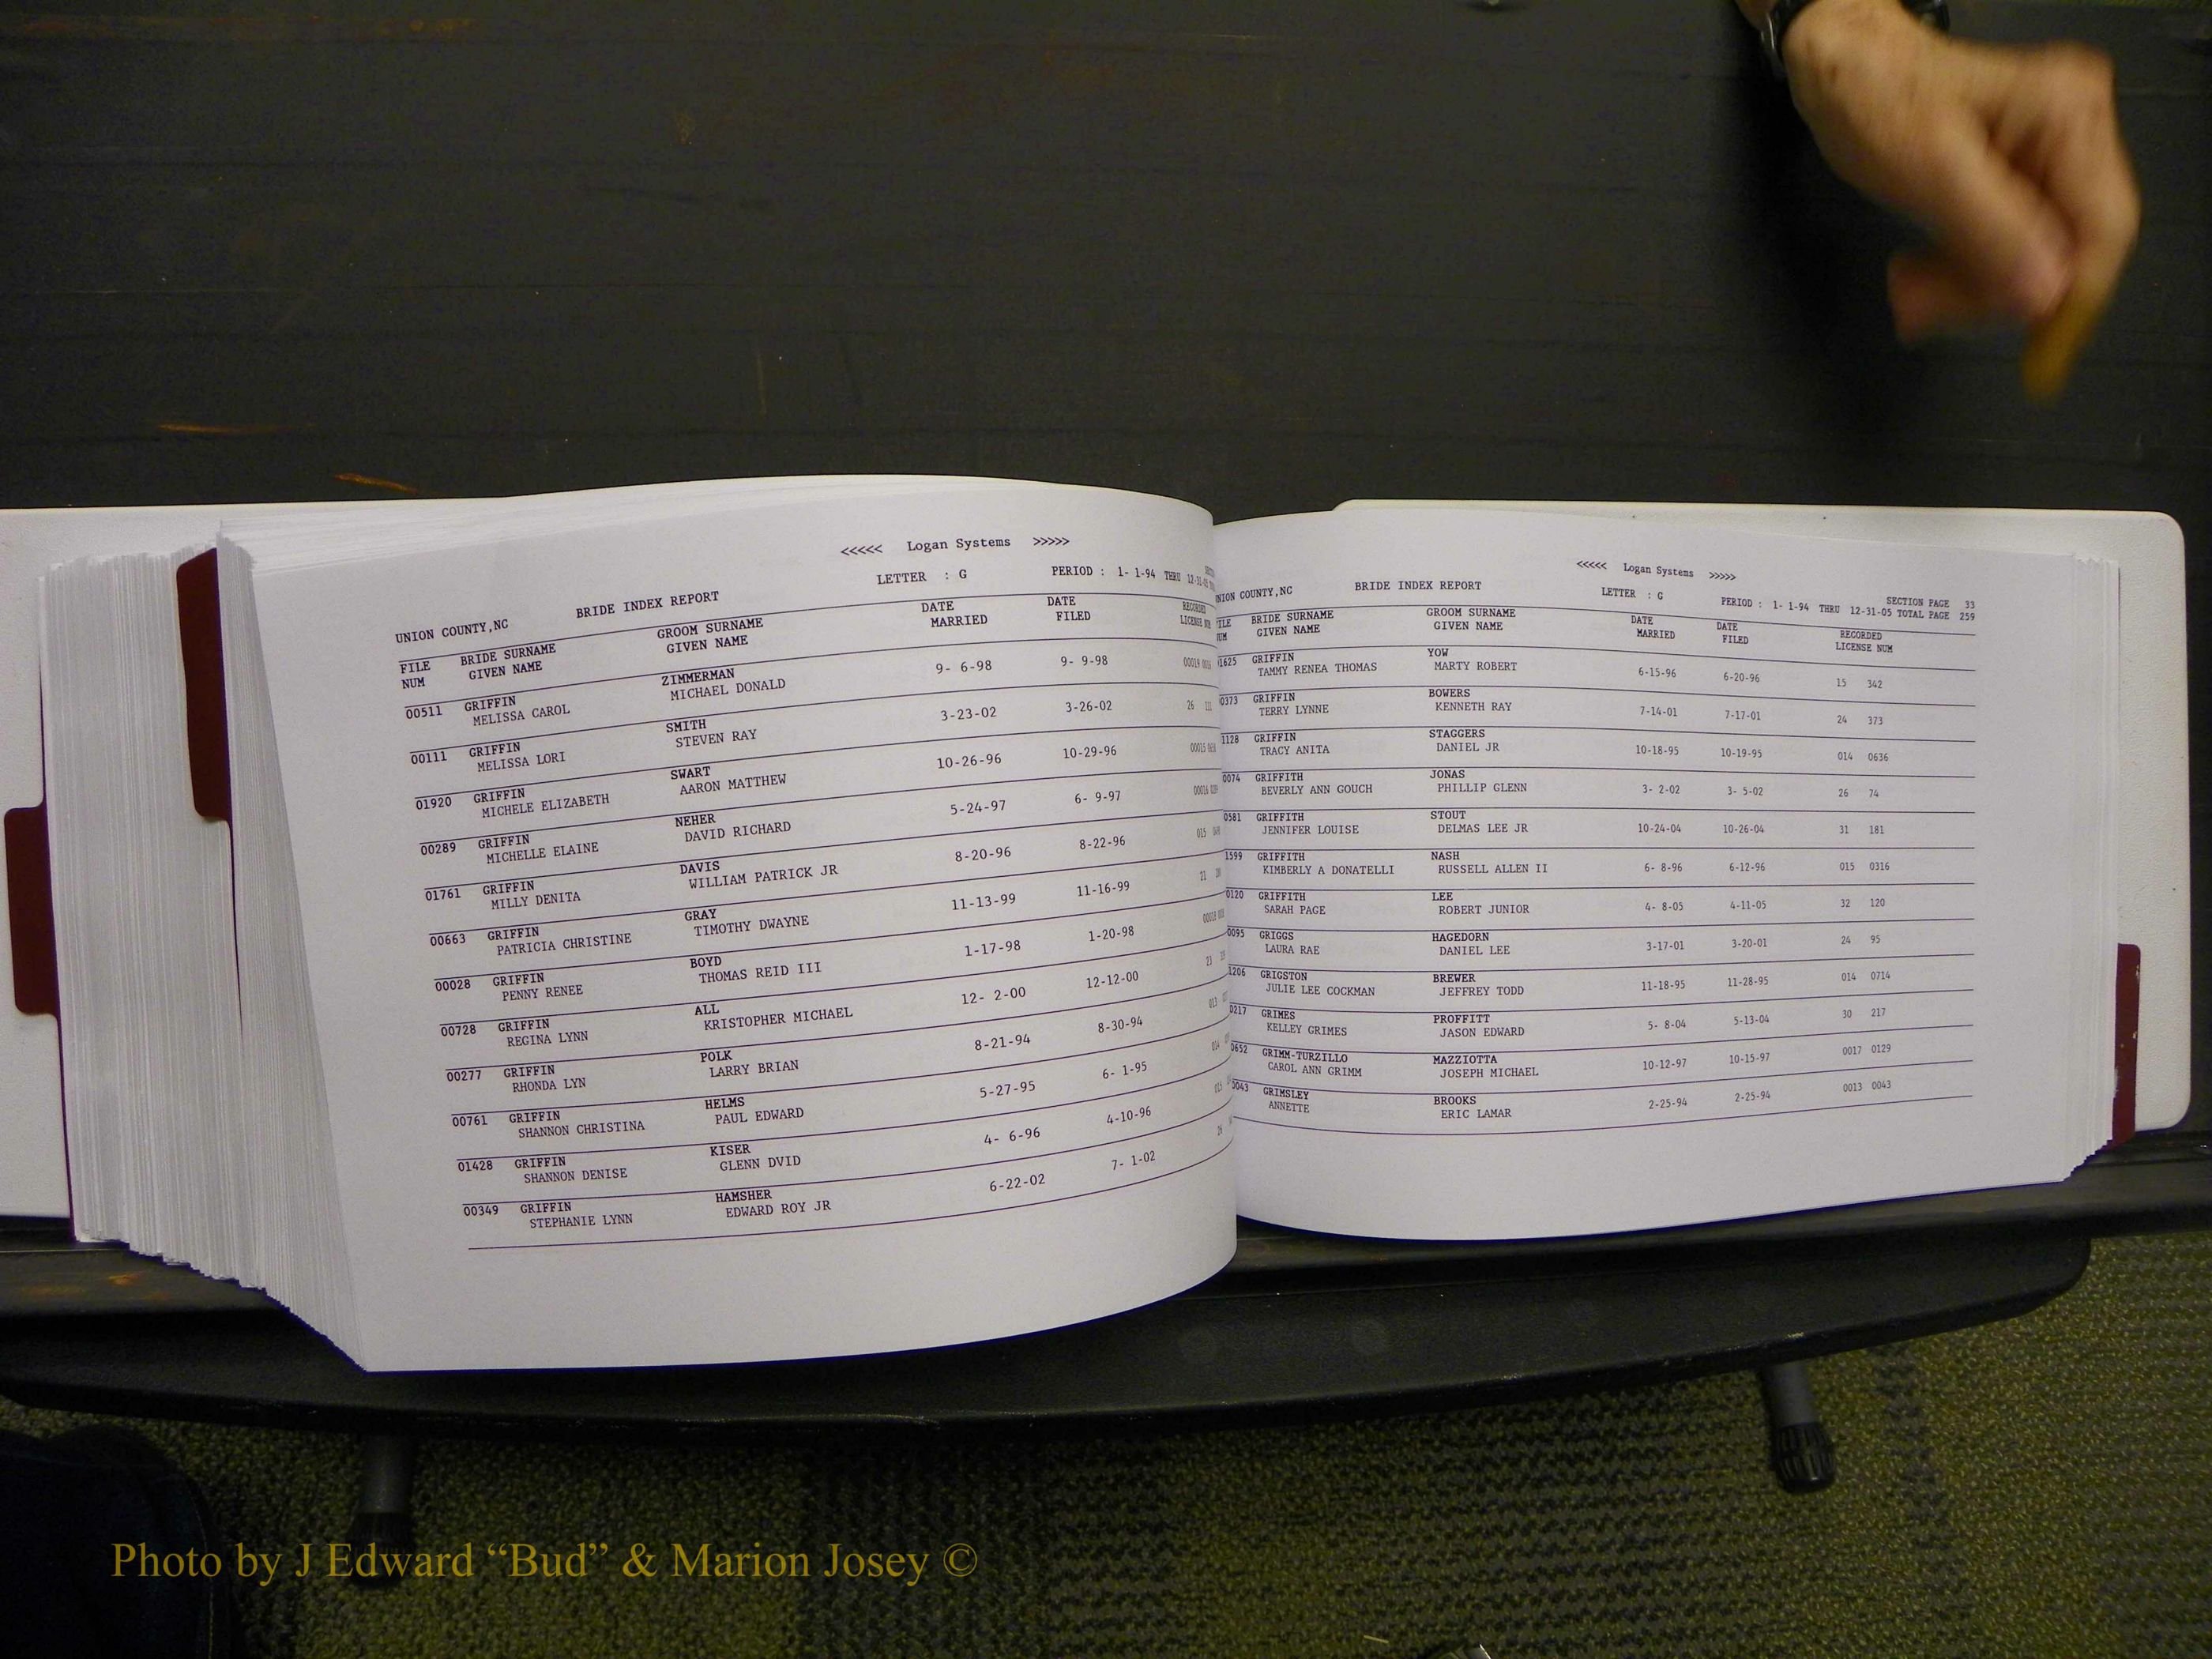 <<<<< Logan Systems >>>>>
LETTER : G PERIOD : 1- 1-94 THRU
UNION COUNTY,NC BRIDE INDEX REPORT
FILE BRIDE SURNAME GROOM SURNAME DATE DATE RECORDED
NUM GIVEN NAME GIVEN NAME MARRIED FILED LICENSE
00511 GRIFFIN ZIMMERMAN 9- 6-98 9- 9-98
MELISSA CAROL MICHAEL DONALD
00111 GRIFFIN SMITH 3-23-02 3-26-02 26
MELISSA LORI STEVEN RAY
01920 GRIFFIN SWART 10-26-96 10-29-96
MICHELE ELIZABETH AARON MATTHEW
00289 GRIFFIN NEHER 5-24-97 6- 9-97
MICHELLE ELAINE DAVID RICHARD
01761 GRIFFIN DAVIS 8-20-96 8-22-96 015
MILLY DENITA WILLIAM PATRICK JR
00663 GRIFFIN GRAY 11-13-99 11-16-99 21
PATRICIA CHRISTINE TIMOTHY DWAYNE
00028 GRIFFIN BOYD 1-17-98 1-20-98
PENNY RENEE THOMAS REID III
00728 GRIFFIN ALL 12- 2-00 12-12-00 23
REGINA LYNN KRISTOPHER MICHAEL
00277 GRIFFIN POLK 8-21-94 8-30-94 013
RHONDA LYN LARRY BRIAN
00761 GRIFFIN HELMS 5-27-95 6- 1-95 014
SHANNON CHRISTINA PAUL EDWARD
01428 GRIFFIN KISER 4- 6-96 4-10-96 015
SHANNON DENISE GLENN DVID
00349 GRIFFIN HAMSHER 6-22-02 7- 1-02 26
STEPHANIE LYNN EDWARD ROY JR
<<<<< Logan Systems >>>>>
COUNTY,NC BRIDE INDEX REPORT LETTER : G SECTION PAGE 33
PERIOD : 1- 1-94 THRU 12-31-05 TOTAL PAGE 259
BRIDE SURNAME GROOM SURNAME DATE DATE RECORDED
GIVEN NAME GIVEN NAME MARRIED FILED LICENSE NUM
1625 GRIFFIN YOW 6-15-96 6-20-96 15 342
TAMMY RENEA THOMAS MARTY ROBERT
0373 GRIFFIN BOWERS 7-14-01 7-17-01 24 373
TERRY LYNNE KENNETH RAY
1128 GRIFFIN STAGGERS 10-18-95 10-19-95 014 0636
TRACY ANITA DANIEL JR
0074 GRIFFITH JONAS 3- 2-02 3- 5-02 26 74
BEVERLY ANN GOUCH PHILLIP GLENN
0581 GRIFFITH STOUT 10-24-04 10-26-04 31 181
JENNIFER LOUISE DELMAS LEE JR
1599 GRIFFITH NASH 6- 8-96 6-12-96 015 0316
KIMBERLY A DONATELLI RUSSELL ALLEN II
0120 GRIFFITH LEE 4- 8-05 4-11-05 32 120
SARAH PAGE ROBERT JUNIOR
0095 GRIGGS HAGEDORN 3-17-01 3-20-01 24 95
LAURA RAE DANIEL LEE
1206 GRIGSTON BREWER 11-18-95 11-28-95 014 0714
JULIE LEE COCKMAN JEFFREY TODD
0217 GRIMES PROFFITT 5- 8-04 5-13-04 30 217
KELLEY GRIMES JASON EDWARD
0652 GRIMM-TURZILLO MAZZIOTTA 10-12-97 10-15-97 0017 0129
CAROL ANN GRIMM JOSEPH MICHAEL
0043 GRIMSLEY BROOKS 2-25-94 2-25-94 0013 0043
ANNETTE ERIC LAMAR
Photo by J Edward “Bud” & Marion Josey ©